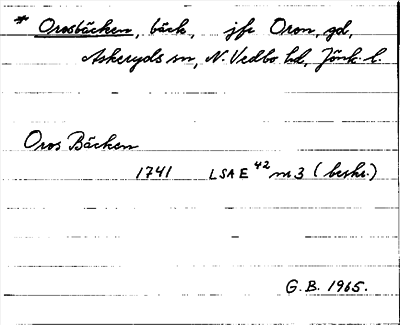 * Orosbäcken, bäck, jfr Oron, gd,
Askeryds sn, N. Vedbo hd, Jönk. l.
Oros Bäcken
1741 LSA E 42 nr 3 (beskr.)
G.B. 1965.